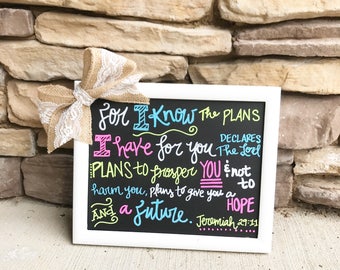 for I know THE PLANS
I have for you DECLARES The Lord
PLANS to prosper YOU & not to
harm you, plans to give you a HOPE
AND a future. Jeremiah 29:11